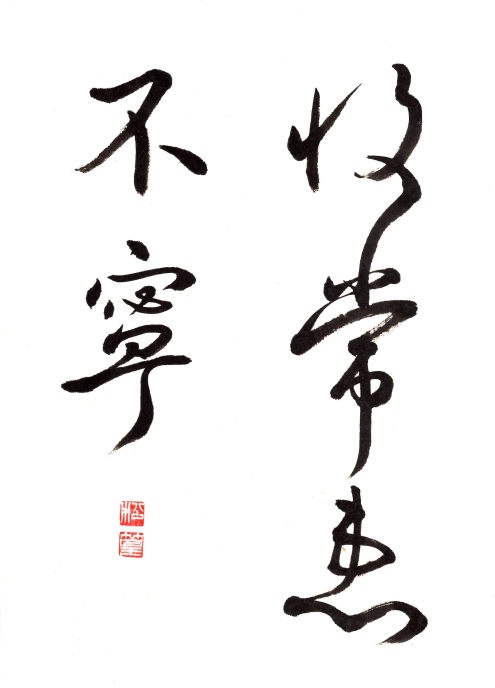 收常患
不寧